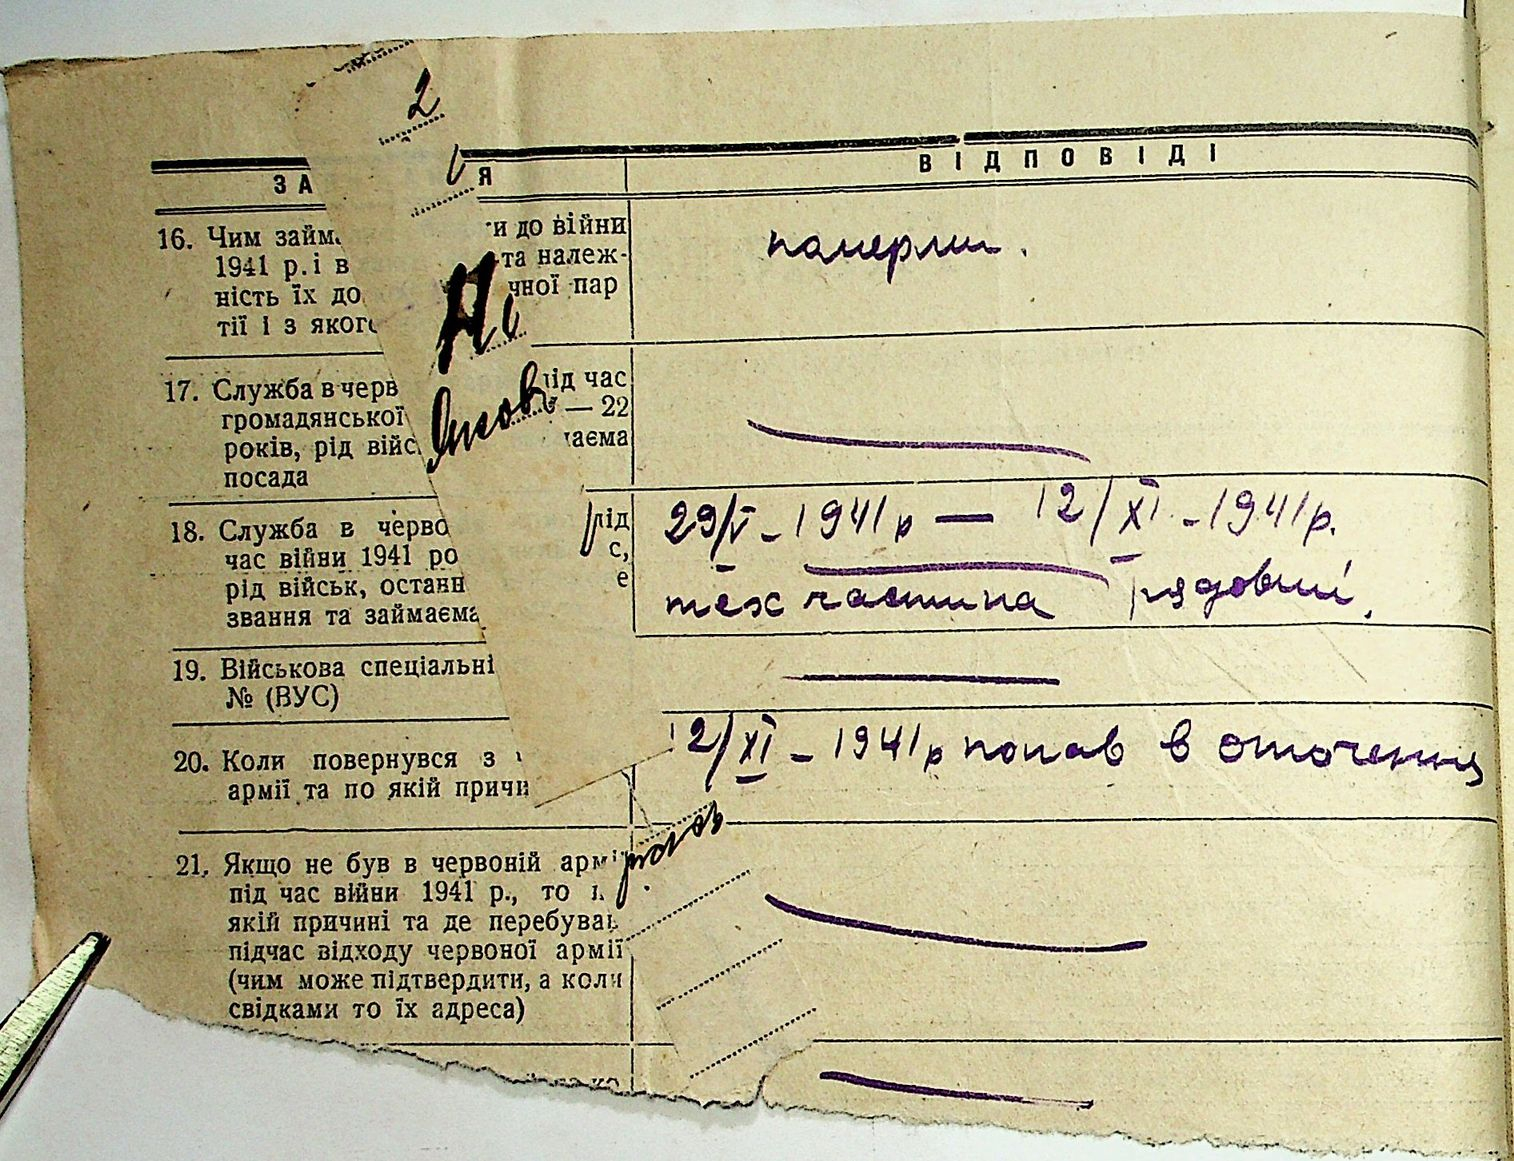 2
ЗА Я ВІДПОВІДІ
16. Чим займ и до війни
1941 р. і в та належ-
ність їх до чної пар
тії і з яког
померли.
17. Служба в черв ід час
громадянської — 22
років, рід війс аєма
посада
18. Служба в черво рід
час війни 1941 ро с,
рід військ, останн е
звання та займаєма
29/V - 1941 р — 12/XI - 1941 р.
тех частина рядовий,
19. Військова спеціальні
№ (ВУС)
20. Коли повернувся з
армії та по якій причи
12/XI - 1941 р попав в оточення
21. Якщо не був в червоній арм
під час війни 1941 р., то
якій причині та де перебував
підчас відходу червоної армії
(чим може підтвердити, а коли
свідками то їх адреса)